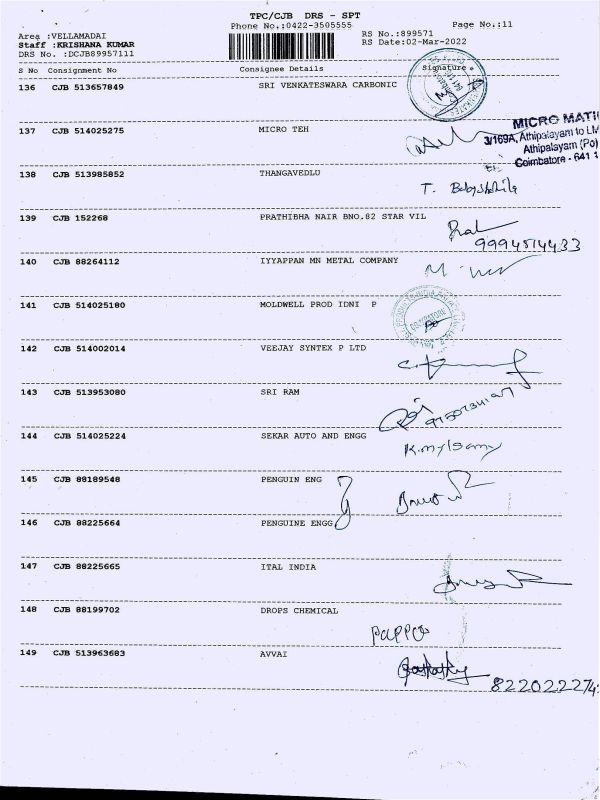 TPC/CJB DRS - SPT
Phone No.:0422-3505555
Page No.:11
Area :VELLAMADAI
RS No.:899571
Staff :KRISHANA KUMAR
RS Date:02-Mar-2022
DRS No. :DCJB89957111
S No Consignment No Consignee Details Signature
136 CJB 513657849 SRI VENKATESWARA CARBONIC
137 CJB 514025275 MICRO TEH
MICRO MATI
3/169A, Athipalayam to LM
Athipalayam (Po)
Coimbatore - 641 1
138 CJB 513985852 THANGAVEDLU
T.
139 CJB 152268 PRATHIBHA NAIR BNO.82 STAR VIL
9994514433
140 CJB 88264112 IYYAPPAN MN METAL COMPANY
141 CJB 514025180 MOLDWELL PROD IDNI P
142 CJB 514002014 VEEJAY SYNTEX P LTD
143 CJB 513953080 SRI RAM
144 CJB 514025224 SEKAR AUTO AND ENGG
K.mylsamy
145 CJB 88189548 PENGUIN ENG
146 CJB 88225664 PENGUINE ENGG
147 CJB 88225665 ITAL INDIA
148 CJB 88199702 DROPS CHEMICAL
149 CJB 513963683 AVVAI
822022274